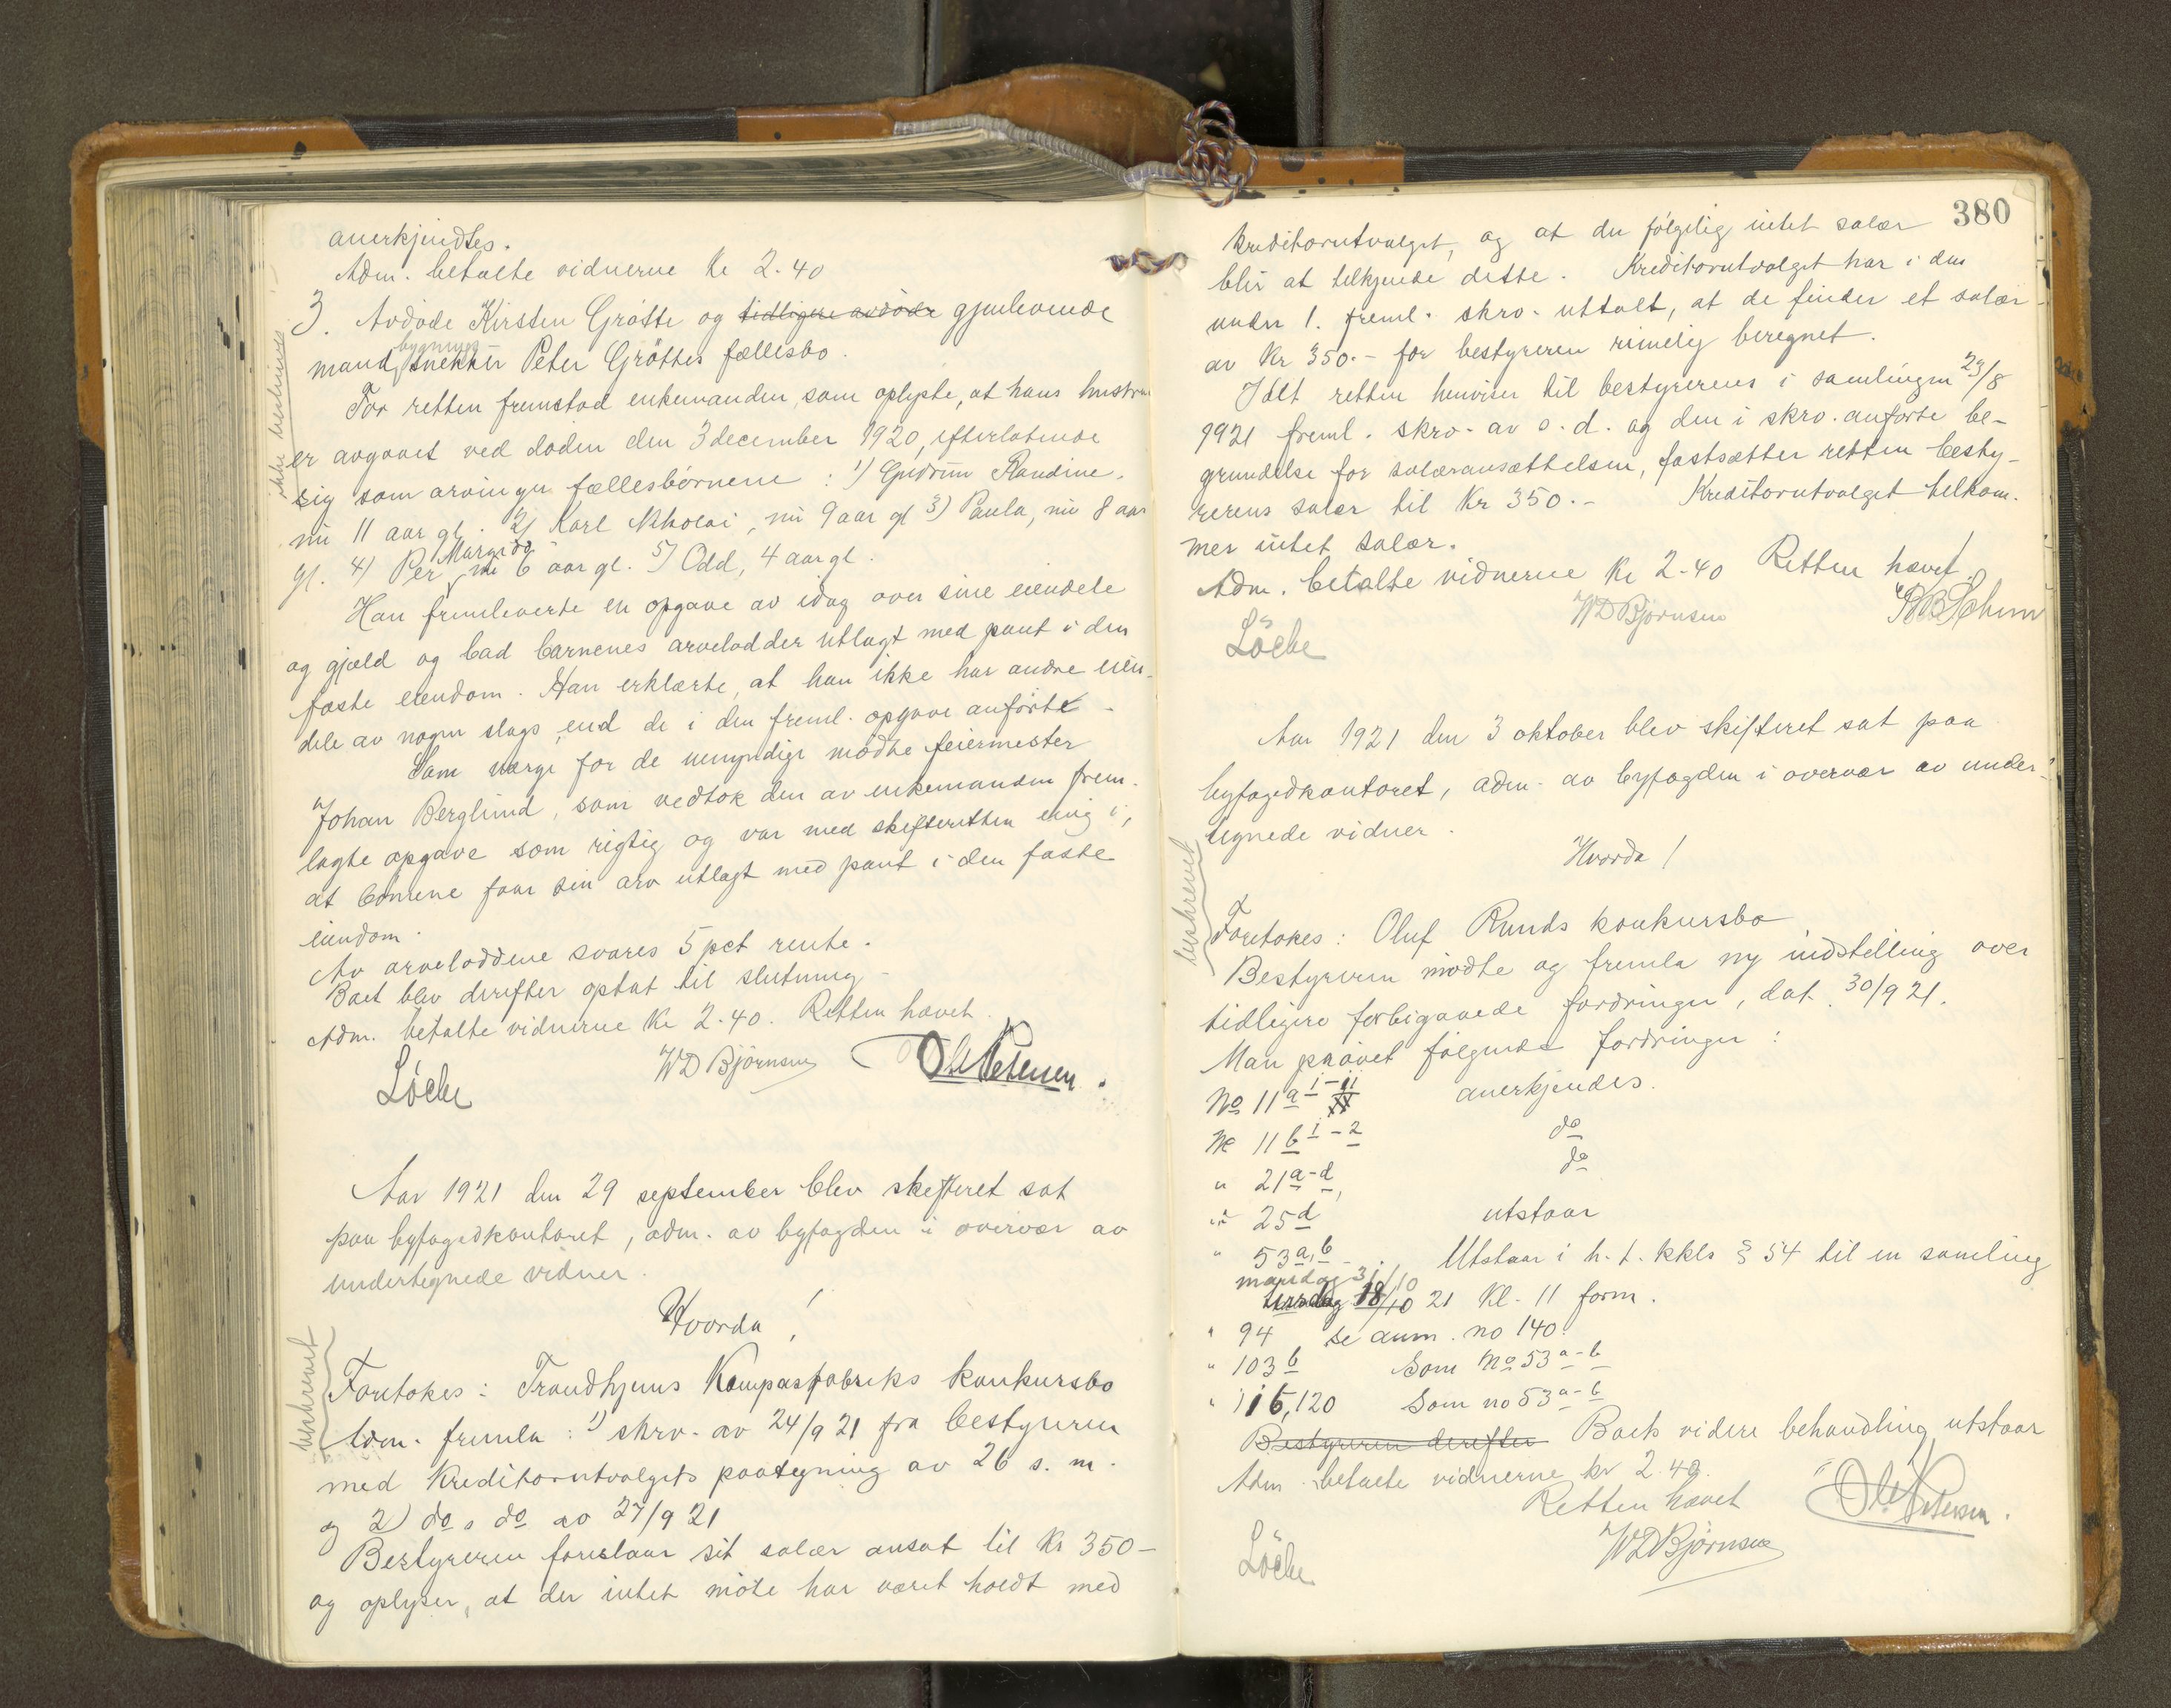 anerkjendtes.
Adm. betalte vidnerne Kr 2.40
3. Avdöde Kirsten Grötte og tidligere avdöde gjenlevende
mand, bygnings-snekker Peter Gröttes fællesbo.
ikke beskrevet
For retten fremstod enkemanden, som oplyste, at hans hustru
er avgaaet ved döden den 3 december 1920, efterlatende
sig som arvinger fællesbörnene: 1) Gudrun Randine,
nu 11 aar gl. 2) Karl Nikolai, nu 9 aar gl 3) Paula, nu 8 aar
gl. 4) Per nu 6 aar gl. 5) Odd, 4 aar gl.
Han fremleverte en opgave av idag over sine eiendele
og gjæld og bad barnenes arvelodder utlagt med pant i den
faste eiendom. Han erklærte, at han ikke har andre eien-
dele av nogen slags end de i den freml. opgave anförte.
Som værge for de umyndige mödte feiermester
Johan Berglund, som vedtok den av enkemanden frem-
lagte opgave som rigtig og var med skifteretten enig i,
at börnene faar sin arv utlagt med pant i den faste
eiendom.
Av arveloddene svares 5 pct rente.
Boet blev derefter optat til slutning
Adm. betalte vidnerne Kr 2.40. Retten hævet.
Löche
WD Björnsen
Ole Petersen.
Aar 1921 den 29 september blev skifteret sat
paa byfogedkontoret, adm. av byfogden i overvær av
undertegnede vidner.
Hvorda!
beskrevet
Foretokes: Trondhjems Kompasfabriks konkursbo
Adm. fremla: 1) skrv. av 24/9 21 fra bestyreren
med Kreditorutvalgets paategning av 26 s. m.
og 2) do s do av 27/9 21
Bestyreren foreslaar sit salær ansat til Kr 350-
og oplyser, at der intet möte har været holdt med
380
kreditorutvalget, og at der fölgelig intet salær
blir at tilkjende dette. Kreditorutvalget har i den
under 1. freml. skrv. uttalt, at de finder et salær
av Kr 350.- for bestyreren rimelig beregnet.
Idet retten henviser til bestyrerens i samlingen 23/8
1921 freml. skrv. av s. d. og den i skrv. anförte be-
grundelse for salæransættelsen, fastsætter retten besty-
rerens salær til Kr 350.- Kreditorutvalget tilkom-
mer intet salær.
Adm. betalte vidnerne Kr 2.40 Retten hævet.
Löche
WD Björnsen
Aar 1921 den 3 oktober blev skifteret sat paa
byfogedkontoret, adm. av byfogden i overvær av under-
tegnede vidner.
Hvorda!
beskrevet
Foretokes: Oluf Runds konkursbo
Bestyreren mödte og fremla ny indstilling over
tidligere forbigaaede fordringer, dat. 30/9 21.
Man prövet fölgende fordringer:
No 11 a i-ii anerkjendes.
No 11 b 1-2 do
" 21 a-d, do
" 25 d utstaar
" 53 a,b. Utstaar i h. t. kkls § 54 til en samling
mandag 31/10
tirsdag 18/10 21 Kl. 11 form.
" 94 se anm. no 140.
" 103 b Som No 53 a-b
" 116, 120 Som no 53 a-b
Bestyreren derefter Boets videre behandling utstaar
Adm. betalte vidnerne kr 2.40.
Retten hævet
Löche
WD Björnsen
Ole Petersen.